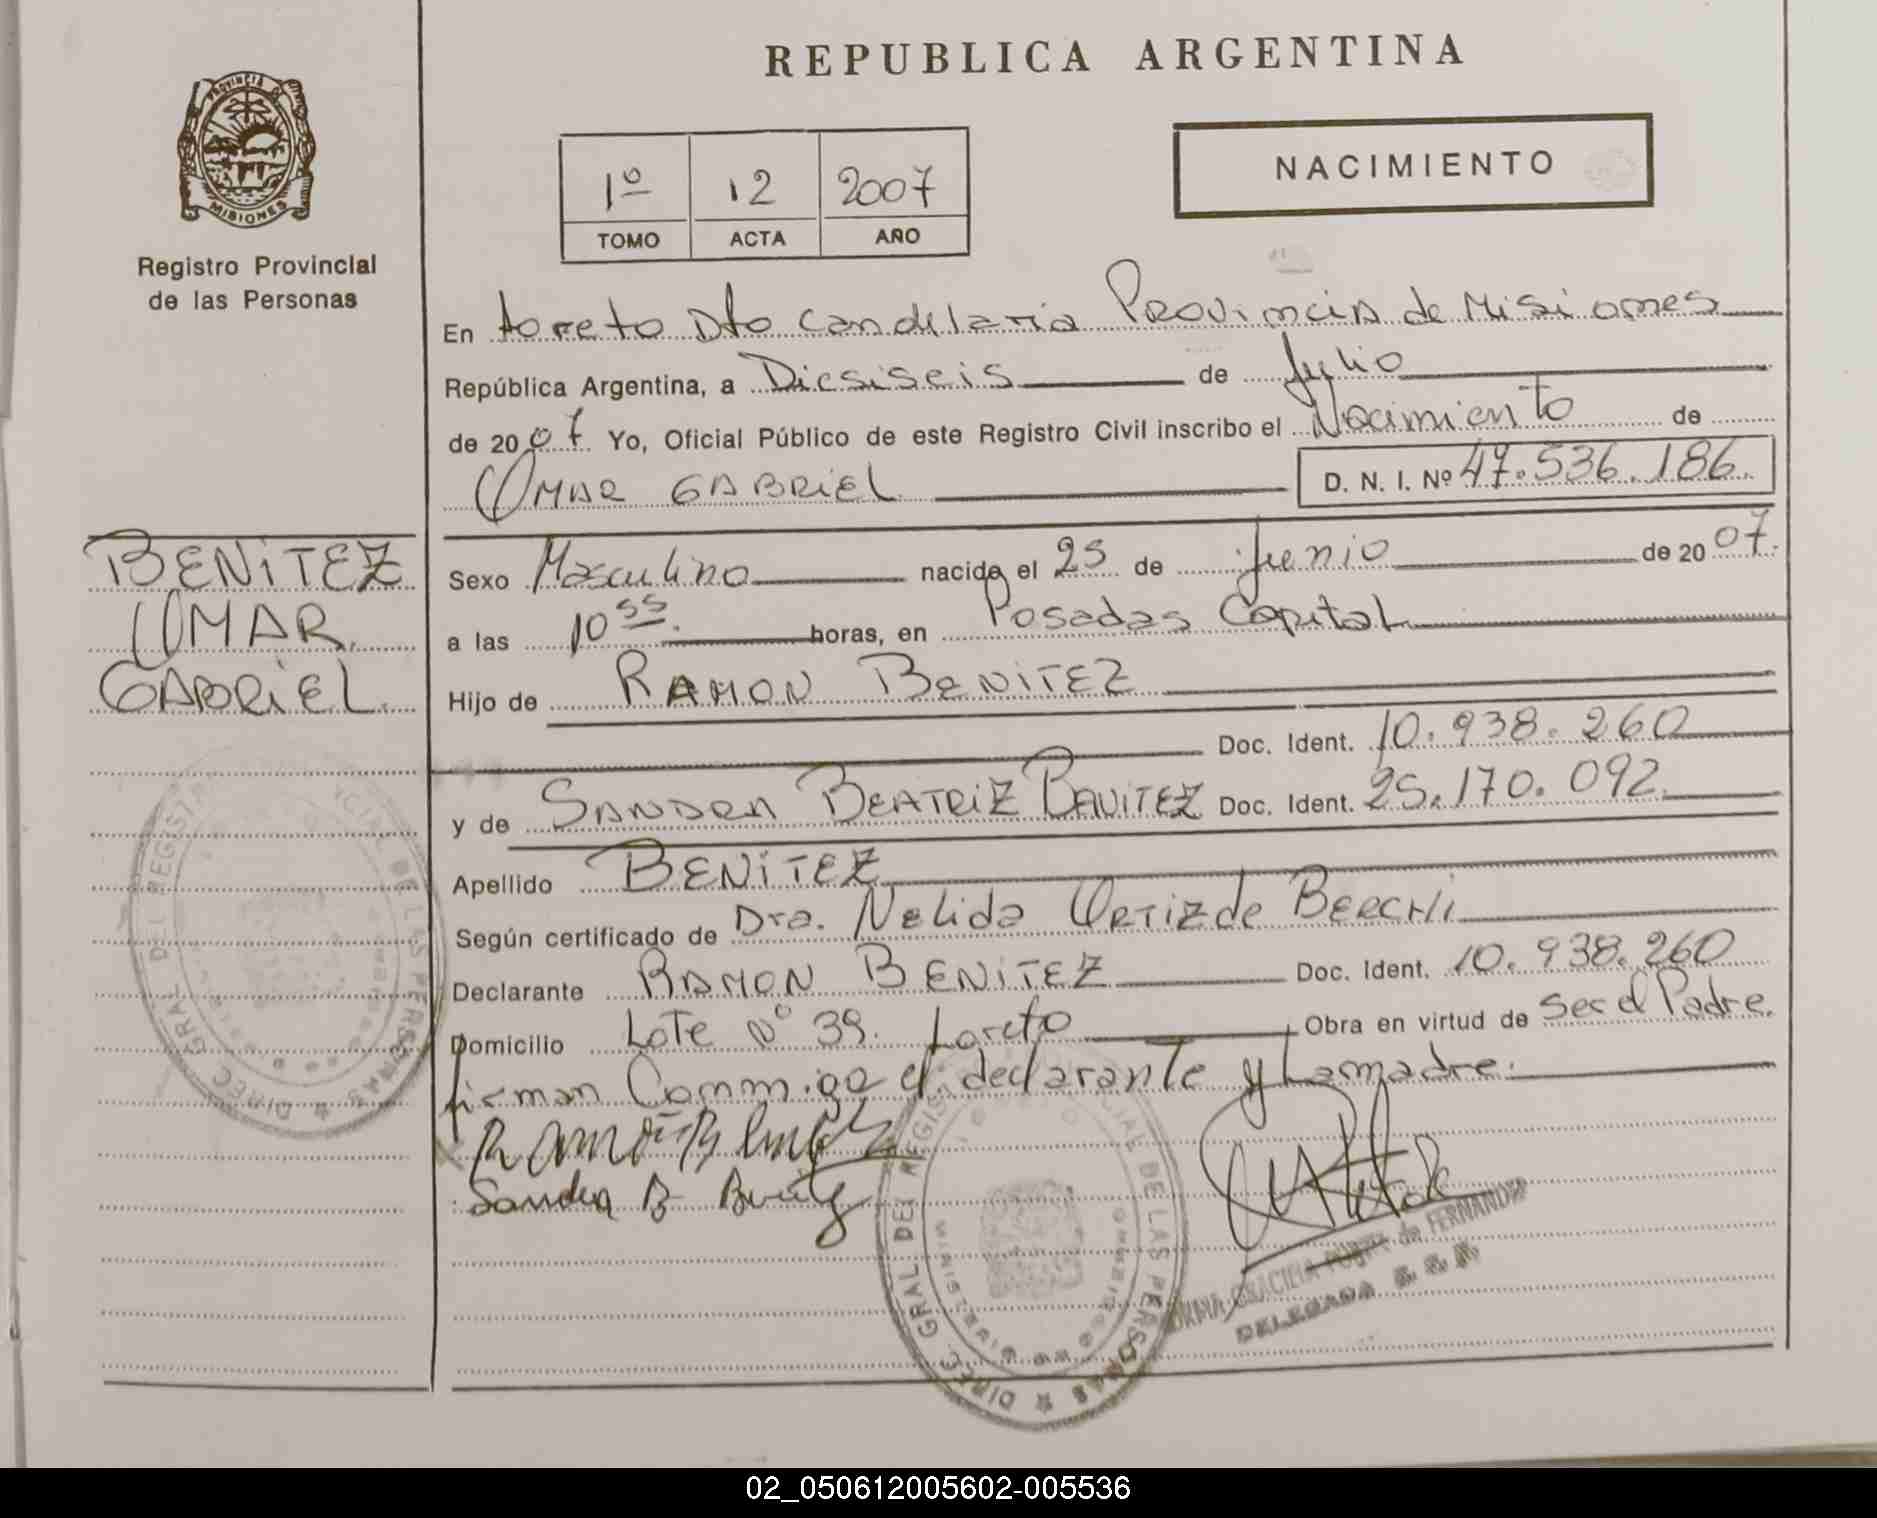 REPUBLICA ARGENTINA
PROVINCIA D
MISIONES
Registro Provincial
de las Personas
1º 12 2007
TOMO ACTA AÑO
NACIMIENTO
En Loreto Dto Candelaria Provincia de Misiones
República Argentina, a Diesiseis de Julio
de 2007 Yo, Oficial Público de este Registro Civil inscribo el Nacimiento de
OMAR GABRIEL D. N. I. Nº 47.536.186.
BENITEZ
OMAR
GABRIEL
Sexo Masculino nacido el 25 de Junio de 2007.
a las 10 55. horas, en Posadas Capital
Hijo de RAMON BENITEZ
Doc. Ident. 10.938.260
y de SANDRA BEATRIZ BENITEZ Doc. Ident. 25.170.092
Apellido BENITEZ
Según certificado de Dra. Nelida Ortiz de Berchi
Declarante RAMON BENITEZ Doc. Ident. 10.938.260
Domicilio Lote Nº 39. Loreto Obra en virtud de Ser el Padre.
firman Conmigo el declarante y La madre.
Ramon Benitez
Sandra B Benitez
DIREC. GRAL DEL REGIST CIAL DE LAS PERSONAS
DIREC. GRAL DEL REGIS CIAL DE LAS PERSONAS
GRACIELA de FERNANDEZ
DELEGADA
02_050612005602-005536